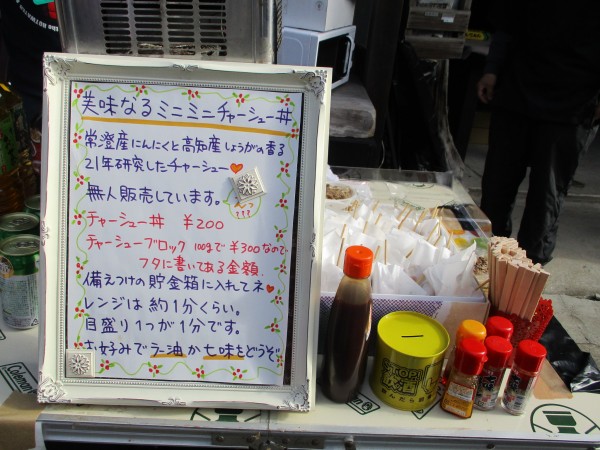 美味なるミニミニチャーシュー丼
常澄産にんにくと高知産しょうがの香る
21年研究したチャーシュー
無人販売しています。
チャーシュー丼 ¥200
チャーシューブロック 100gまで¥300なので
フタに書いてある金額
備えつけの貯金箱に入れてネ
レンジは約1分くらい。
目盛り1つが1分です。
お好みでラー油か七味をどうぞ
STOP!
Coleman